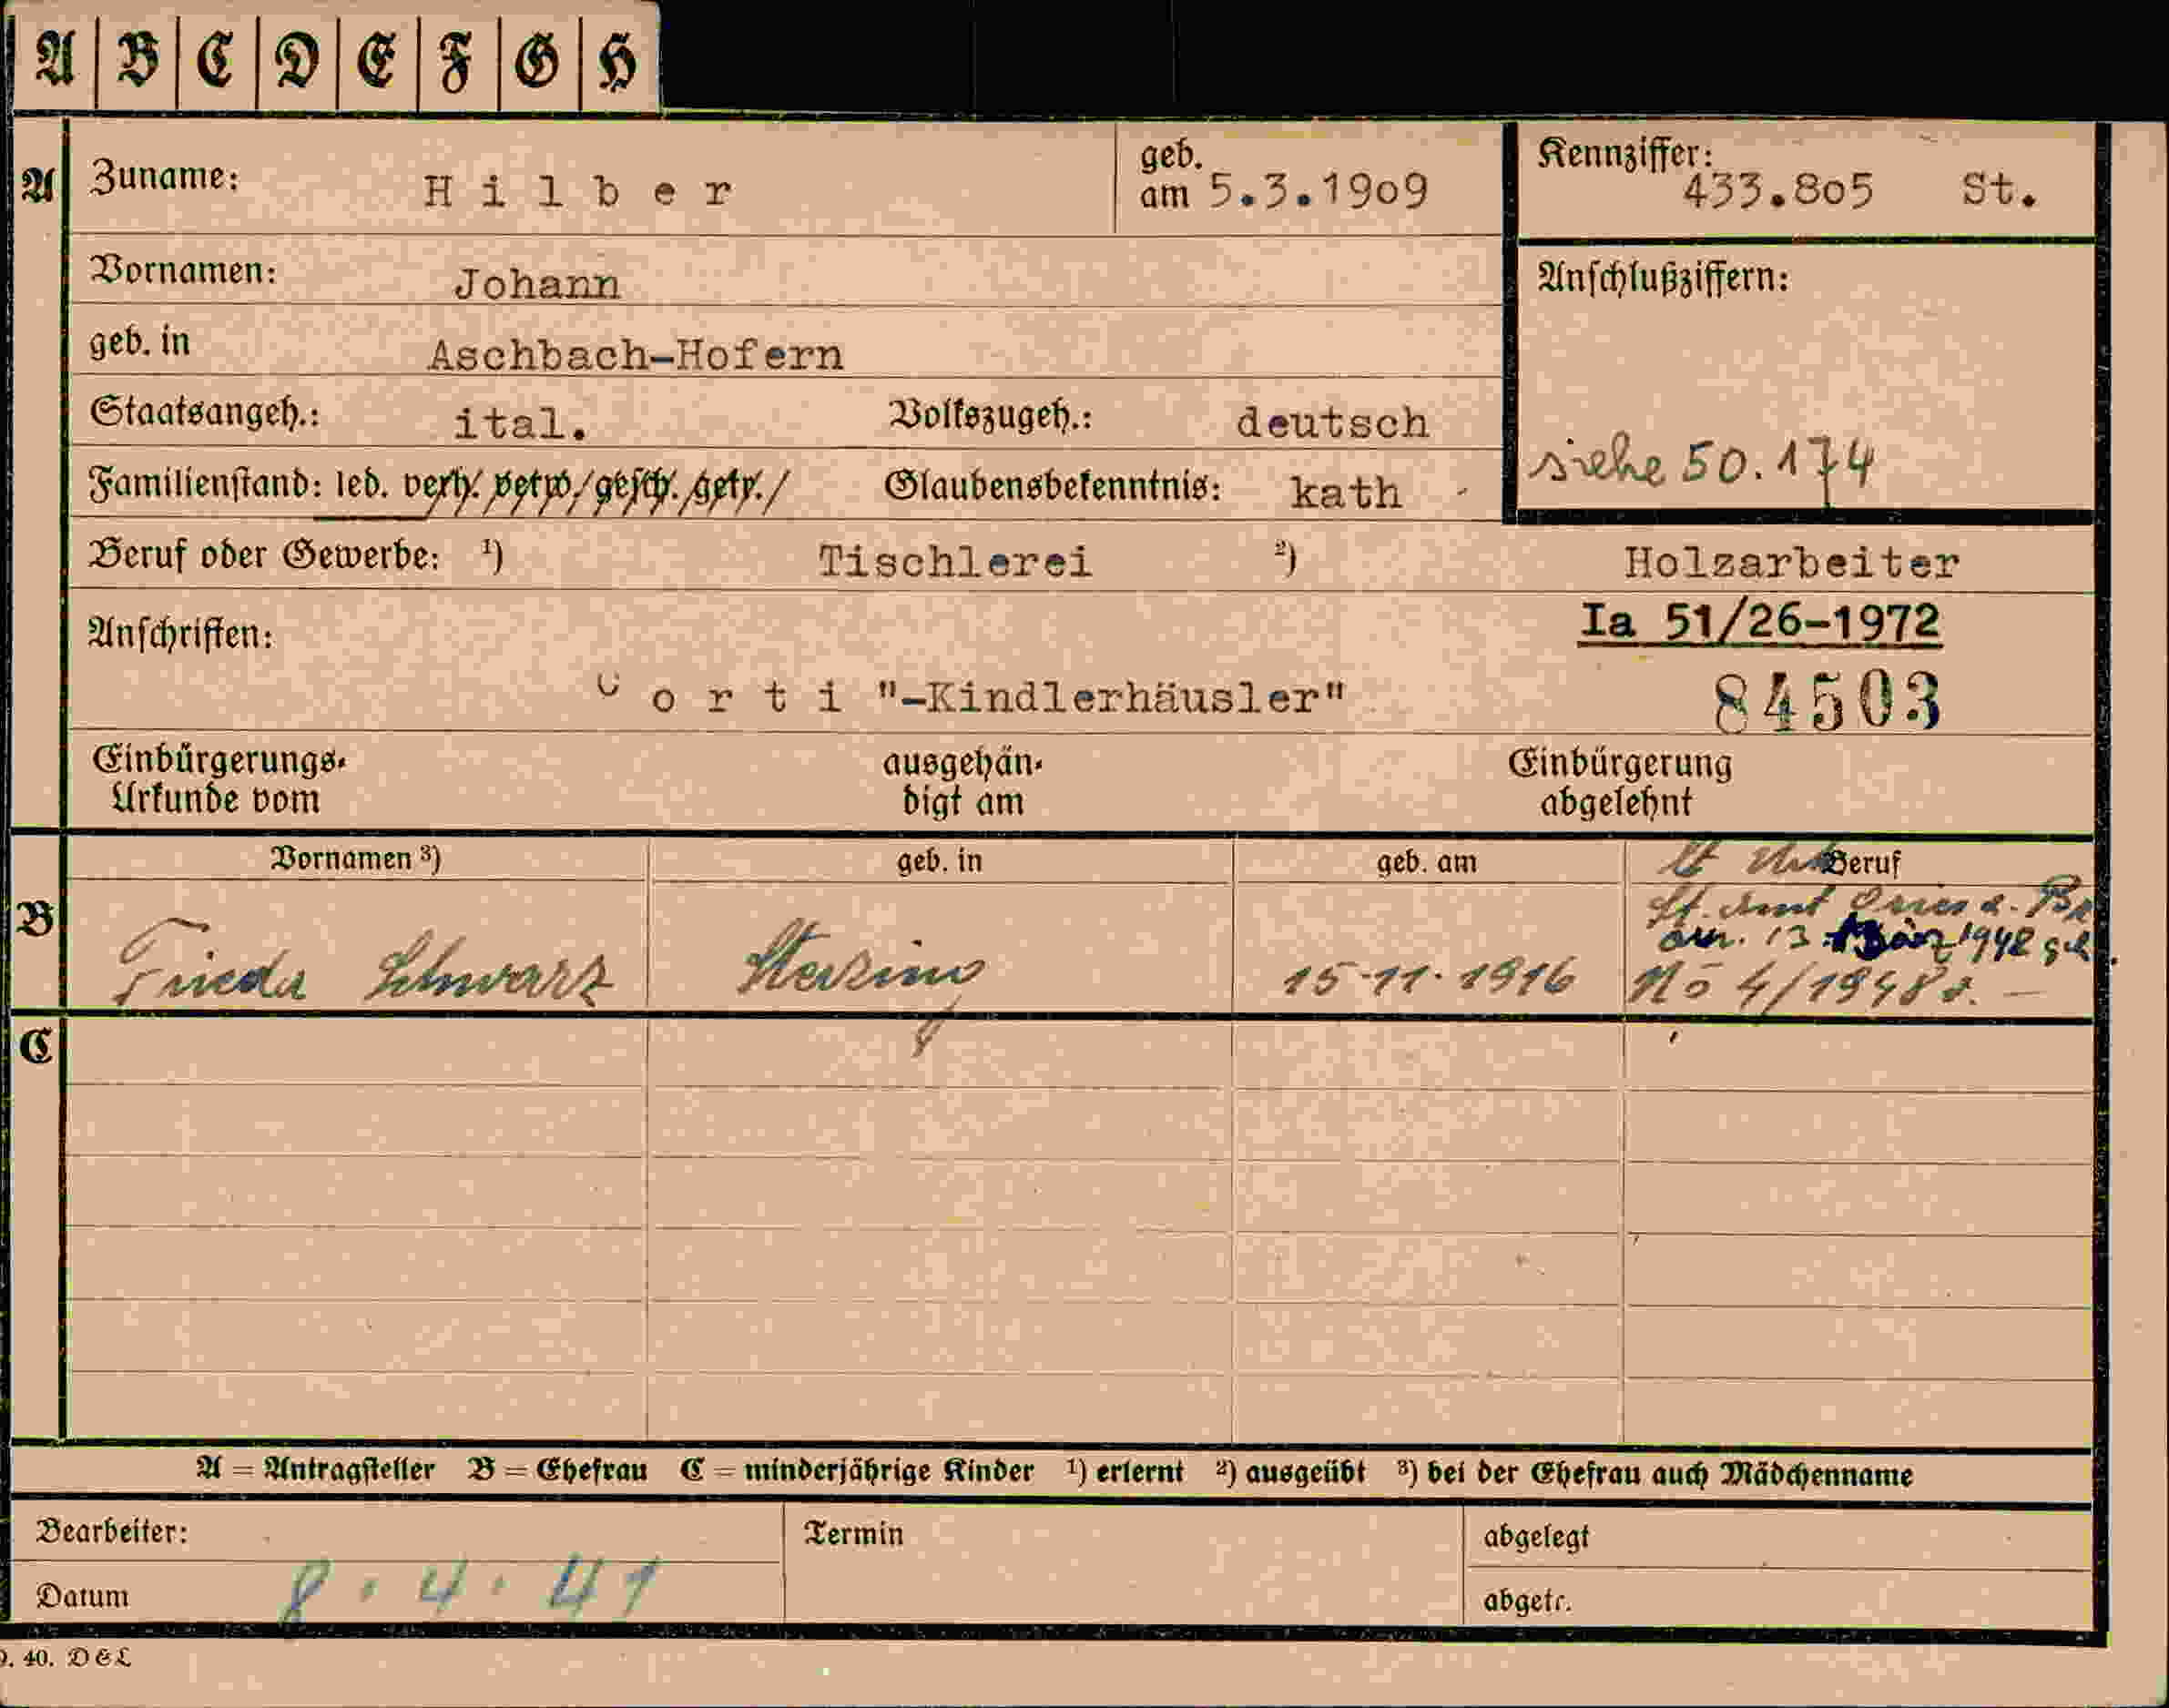 A B C D E F G H
A Zuname: Hilber geb. am 5.3.1909 Kennziffer: 433.805 St.
Vornamen: Johann Anschlußziffern:
geb. in Aschbach-Hofern
Staatsangeh.: ital. Volkszugeh.: deutsch
siehe 50.174
Familienstand: led. verh. verw. gesch. getr. Glaubensbekenntnis: kath
Beruf oder Gewerbe: ¹) Tischlerei ²) Holzarbeiter
Anschriften: Ia 51/26-1972
orti "-Kindlerhäusler" 84503
Einbürgerungs- ausgehän- Einbürgerung
Urkunde vom digt am abgelehnt
Vornamen ³) geb. in geb. am Beruf
St. Amt
B 13. März 1942
Frieda Schwarz Sterzing 15.11.1916 No 4/1948
C
A = Antragsteller B = Ehefrau C = minderjährige Kinder ¹) erlernt ²) ausgeübt ³) bei der Ehefrau auch Mädchenname
Bearbeiter: Termin abgelegt
Datum 8.4.41 abgetr.
40. DEL